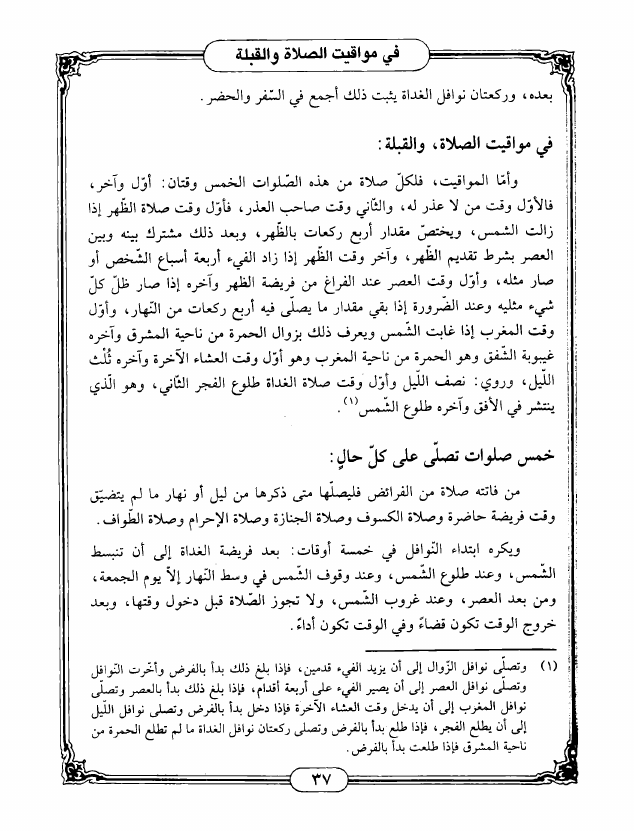 في مواقيت الصلاة والقبلة
بعده، وركعتان نوافل الغداة يثبت ذلك أجمع في السّفر والحضر.
في مواقيت الصلاة، والقبلة:
وأمّا المواقيت، فلكلّ صلاة من هذه الصّلوات الخمس وقتان: أوّل وآخر،
فالأوّل وقت من لا عذر له، والثّاني وقت صاحب العذر، فأوّل وقت صلاة الظّهر إذا
زالت الشمس، ويختصّ مقدار أربع ركعات بالظّهر، وبعد ذلك مشترك بينه وبين
العصر بشرط تقديم الظّهر، وآخر وقت الظّهر إذا زاد الفيء أربعة أسباع الشّخص أو
صار مثله، وأوّل وقت العصر عند الفراغ من فريضة الظهر وآخره إذا صار ظلّ كلّ
شيء مثليه وعند الضّرورة إذا بقي مقدار ما يصلّى فيه أربع ركعات من النّهار، وأوّل
وقت المغرب إذا غابت الشّمس ويعرف ذلك بزوال الحمرة من ناحية المشرق وآخره
غيبوبة الشّفق وهو الحمرة من ناحية المغرب وهو أوّل وقت العشاء الآخرة وآخره ثُلْث
اللّيل، وروي: نصف اللّيل وأوّل وقت صلاة الغداة طلوع الفجر الثّاني، وهو الّذي
ينتشر في الأفق وآخره طلوع الشّمس(١).
خمس صلوات تصلّى على كلّ حالٍ:
من فاتته صلاة من الفرائض فليصلّها متى ذكرها من ليل أو نهار ما لم يتضيّق
وقت فريضة حاضرة وصلاة الكسوف وصلاة الجنازة وصلاة الإحرام وصلاة الطّواف.
ويكره ابتداء النّوافل في خمسة أوقات: بعد فريضة الغداة إلى أن تنبسط
الشّمس، وعند طلوع الشّمس، وعند وقوف الشّمس في وسط النّهار إلاّ يوم الجمعة،
ومن بعد العصر، وعند غروب الشّمس، ولا تجوز الصّلاة قبل دخول وقتها، وبعد
خروج الوقت تكون قضاءً وفي الوقت تكون أداءً.
(١) وتصلّى نوافل الزّوال إلى أن يزيد الفيء قدمين، فإذا بلغ ذلك بدأ بالفرض وأخّرت النّوافل
وتصلّى نوافل العصر إلى أن يصير الفيء على أربعة أقدام، فإذا بلغ ذلك بدأ بالعصر وتصلّى
نوافل المغرب إلى أن يدخل وقت العشاء الآخرة فإذا دخل بدأ بالفرض وتصلى نوافل اللّيل
إلى أن يطلع الفجر، فإذا طلع بدأ بالفرض وتصلى ركعتان نوافل الغداة ما لم تطلع الحمرة من
ناحية المشرق فإذا طلعت بدأ بالفرض.
٣٧